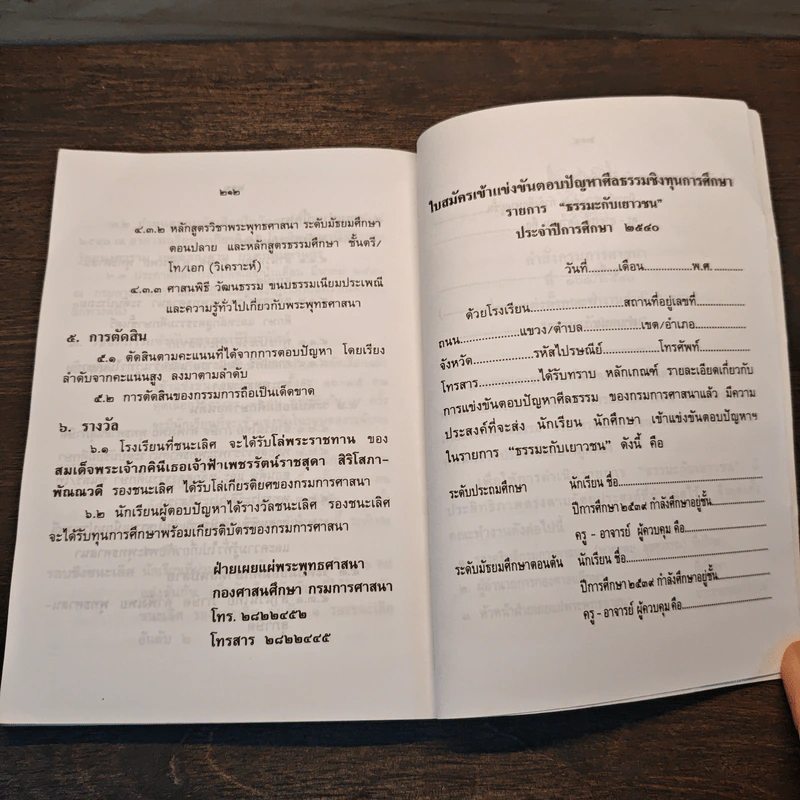 ๒๑๒
๔.๓.๒ หลักสูตรวิชาพระพุทธศาสนา ระดับมัธยมศึกษา
ตอนปลาย และหลักสูตรธรรมศึกษา ชั้นตรี/
โท/เอก (วิเคราะห์)
๔.๓.๓ ศาสนพิธี วัฒนธรรม ขนบธรรมเนียมประเพณี
และความรู้ทั่วไปเกี่ยวกับพระพุทธศาสนา
๕. การตัดสิน
๕.๑ ตัดสินตามคะแนนที่ได้จากการตอบปัญหา โดยเรียง
ลำดับจากคะแนนสูง ลงมาตามลำดับ
๕.๒ การตัดสินของกรรมการถือเป็นเด็ดขาด
๖. รางวัล
๖.๑ โรงเรียนที่ชนะเลิศ จะได้รับโล่พระราชทาน ของ
สมเด็จพระเจ้าภคินีเธอเจ้าฟ้าเพชรรัตน์ราชสุดา สิริโสภา-
พัณณวดี รองชนะเลิศ ได้รับโล่เกียรติยศของกรมการศาสนา
๖.๒ นักเรียนผู้ตอบปัญหาได้รางวัลชนะเลิศ รองชนะเลิศ
จะได้รับทุนการศึกษาพร้อมเกียรติบัตรของกรมการศาสนา
ฝ่ายเผยแผ่พระพุทธศาสนา
กองศาสนศึกษา กรมการศาสนา
โทร. ๒๘๒๒๔๕๒
โทรสาร ๒๘๒๒๔๔๕
ใบสมัครเข้าแข่งขันตอบปัญหาศีลธรรมชิงทุนการศึกษา
รายการ "ธรรมะกับเยาวชน"
ประจำปีการศึกษา ๒๕๔๐
วันที่..........เดือน...............พ.ศ..........
ด้วยโรงเรียน..............................สถานที่อยู่เลขที่..............
ถนน..................แขวง/ตำบล..................เขต/อำเภอ................
จังหวัด..................รหัสไปรษณีย์..................โทรศัพท์................
โทรสาร..................ได้รับทราบ หลักเกณฑ์ รายละเอียดเกี่ยวกับ
การแข่งขันตอบปัญหาศีลธรรม ของกรมการศาสนาแล้ว มีความ
ประสงค์ที่จะส่ง นักเรียน นักศึกษา เข้าแข่งขันตอบปัญหาฯ
ในรายการ "ธรรมะกับเยาวชน" ดังนี้ คือ
ระดับประถมศึกษา นักเรียน ชื่อ........................................
ปีการศึกษา ๒๕๓๙ กำลังศึกษาอยู่ชั้น....................
ครู - อาจารย์ ผู้ควบคุม คือ..............................
ระดับมัธยมศึกษาตอนต้น นักเรียน ชื่อ........................................
ปีการศึกษา ๒๕๓๙ กำลังศึกษาอยู่ชั้น....................
ครู - อาจารย์ ผู้ควบคุม คือ..............................